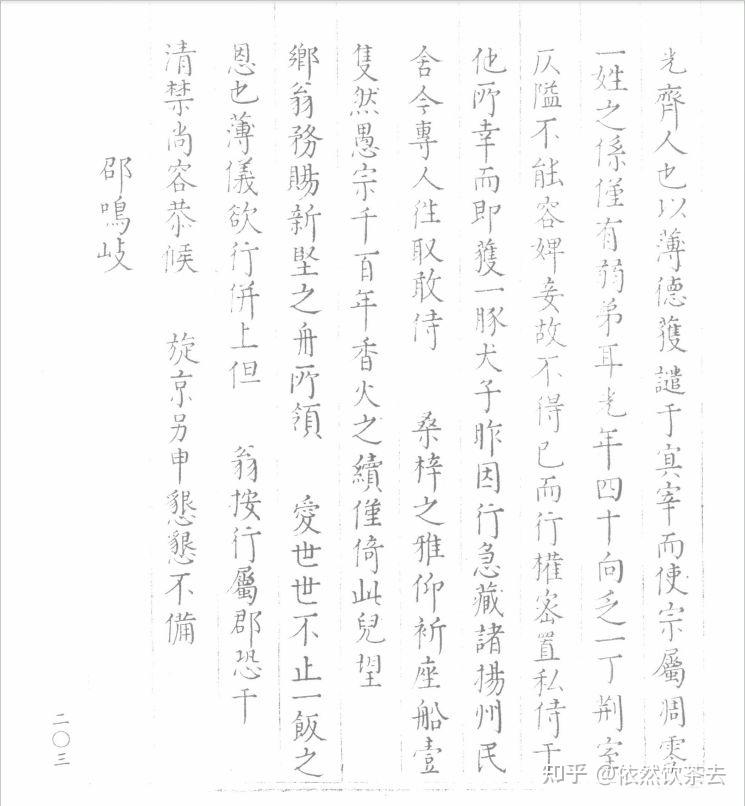 光齊人也以薄德獲譴于冥宰而使宗屬凋零
一姓之係僅有弱弟耳光年四十向乏一丁荆室
仄隘不能容婢妾故不得已而行權密置私侍于
他所幸而即獲一豚犬子昨因行急藏諸揚州民
舍今專人往取敢侍 桑梓之雅仰祈座船壹
隻然愚宗千百年香火之續僅倚此兒望
鄉翁務賜新堅之舟所領 愛世世不止一飯之
恩也薄儀欲行併上但 翁按行屬郡恐干
清禁尚容恭候 旋京另申懇懇不備
邵鳴岐
二〇三
知乎 @依然饮茶去